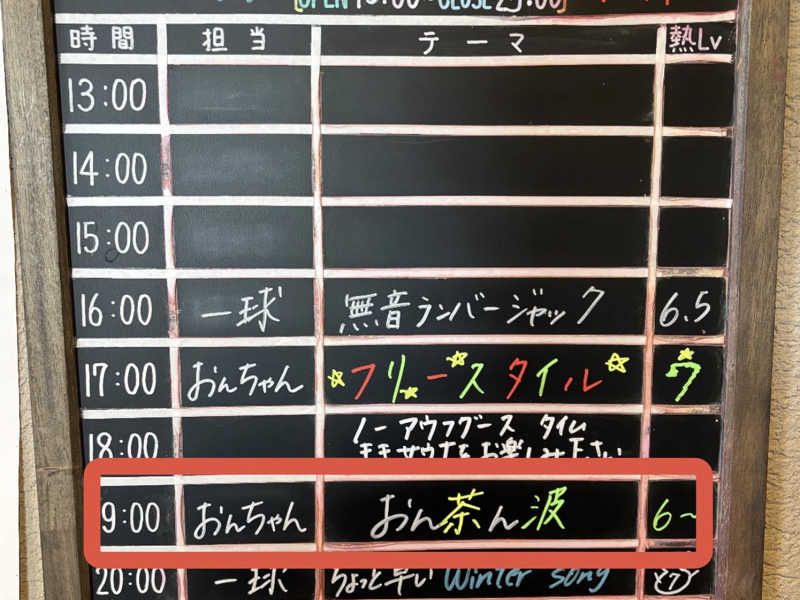 [OPEN 13:00~CLOSE 23:00]
時間 担当 テーマ 熱Lv
13:00
14:00
15:00
16:00 一球 無音ランバージャック 6.5
17:00 おんちゃん ☆フリースタイル☆ ワ
18:00 ノーアウフグースタイム
サウナをお楽しみ下さい
9:00 おんちゃん おん茶ん波 6~
20:00 一球 ちょっと早い Winter song 7